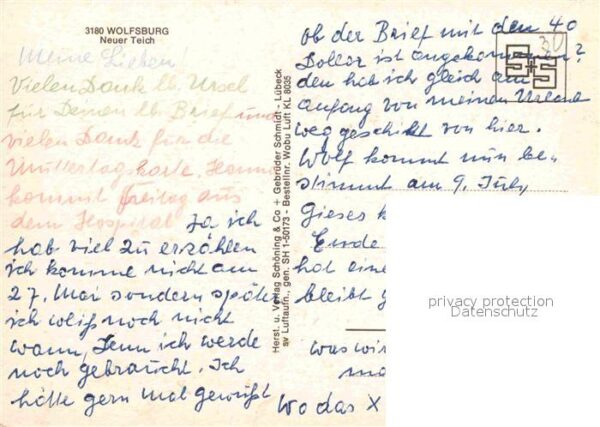 3180 WOLFSBURG
Neuer Teich
Meine Lieben!
Vielen Dank lb. Ursel
für Deinen lb. Brief und
vielen Dank für die
Muttertagskarte. Hanna
kommt Freitag aus
dem Hospital. Ja ich
hab viel zu erzählen
ich komme nicht am
27. Mai sondern späte
ich weiß noch nicht
wann, denn ich werde
noch gebraucht. Ich
hätte gern mal gewußt
Herst. u. Verlag Schöning & Co + Gebrüder Schmidt - Lübeck
sv Luftaufn., gen. SH 1-50173 - Bestellnr. Wobu Luft KL 8035
ob der Brief mit den 40
Dollar ist angekommen?
den hab ich gleich am
anfang von meinen Urlaub
weg geschikt von hier.
Wolf kommt nun be-
stimmt am 9. July
Gieses
Ende
hat eine
bleibt
was wir
Wo das X
30
S+S
privacy protection
Datenschutz